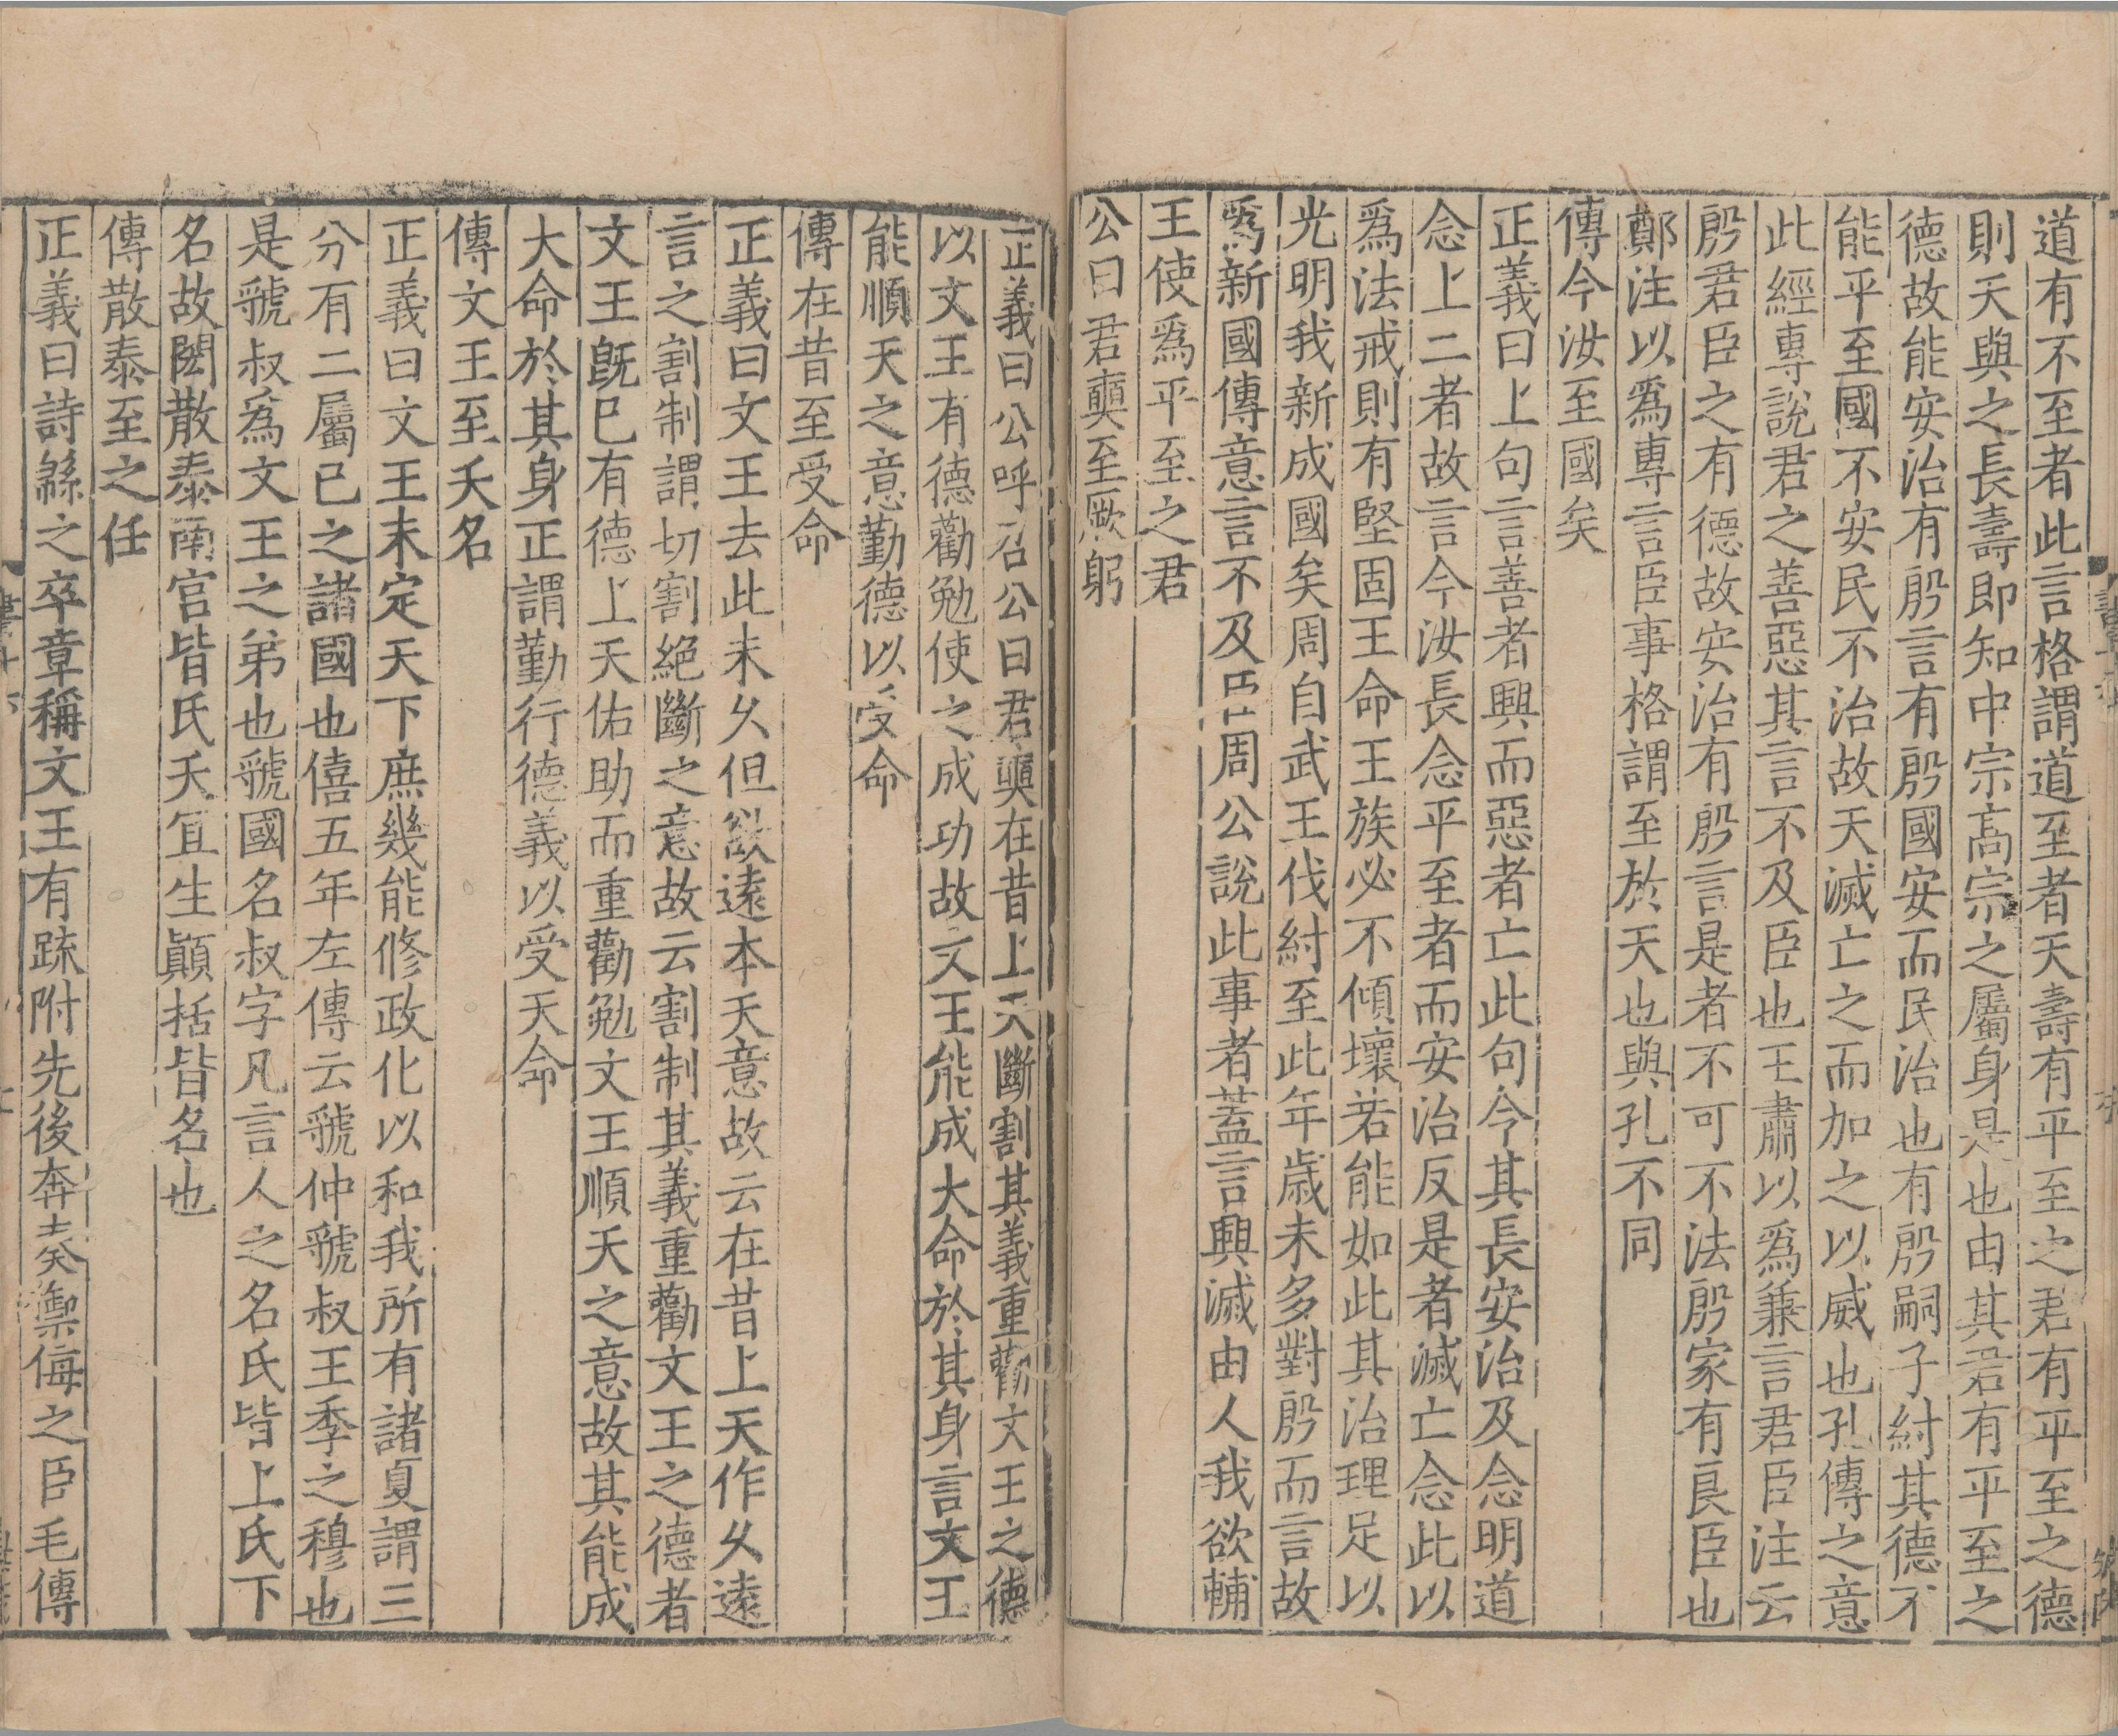 道有不至者此言格謂道至者天壽有平至之君有平至之德
則天與之長壽即知中宗高宗之屬身是也由其君有平至之
德故能安治有殷言有殷國安而民治也有殷嗣子紂其德不
能平至國不安民不治故天滅亡之而加之以威也孔傳之意
此經專說君之善惡其言不及臣也王肅以爲兼言君臣注云
殷君臣之有德故安治有殷言是者不可不法殷家有良臣也
鄭注以爲專言臣事格謂至於天也與孔不同
傳今汝至國矣
正義曰上句言善者興而惡者亡此句今其長安治及念明道
念上二者故言今汝長念平至者而安治反是者滅亡念此以
爲法戒則有堅固王命王族必不傾壞若能如此其治理足以
光明我新成國矣周自武王伐紂至此年歲未多對殷而言故
爲新國傳意言不及臣周公說此事者蓋言興滅由人我欲輔
王使爲平至之君
公曰君奭至厥躬
正義曰公呼召公曰君奭在昔上天斷割其義重勸文王之德
以文王有德勸勉使之成功故文王能成大命於其身言文王
能順天之意勤德以受命
傳在昔至受命
正義曰文王去此未久但欲遠本天意故云在昔上天作久遠
言之割制謂切割絕斷之意故云割制其義重勸文王之德者
文王既已有德上天佑助而重勸勉文王順天之意故其能成
大命於其身正謂勤行德義以受天命
傳文王至夭名
正義曰文王未定天下庶幾能修政化以和我所有諸夏謂三
分有二屬己之諸國也僖五年左傳云虢仲虢叔王季之穆也
是虢叔爲文王之弟也虢國名叔字凡言人之名氏皆上氏下
名故閎散泰南宮皆氏夭宜生顚括皆名也
傳散泰至之任
正義曰詩緜之卒章稱文王有疏附先後奔奏禦侮之臣毛傳